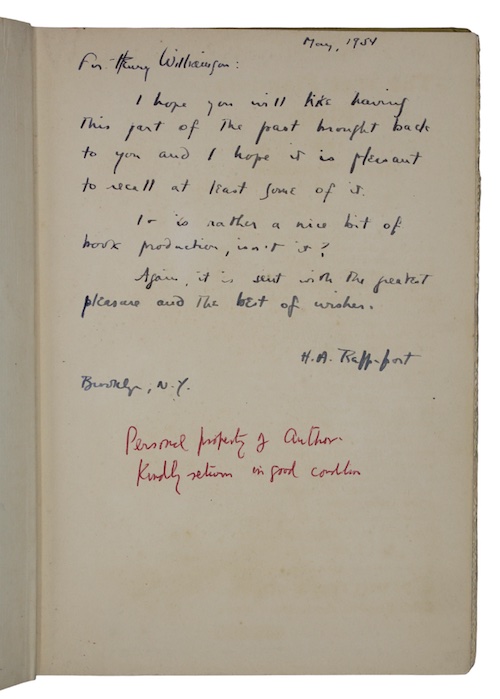 May, 1951
For Henry Williamson:
I hope you will like having
this part of the past brought back
to you and I hope it is pleasant
to recall at least some of it.
It is rather a nice bit of
book production, isn't it?
Again, it is sent with the greatest
pleasure and the best of wishes.
H.A. Rappaport
Brooklyn, N.Y.
Personal property of Author.
Kindly return in good condition